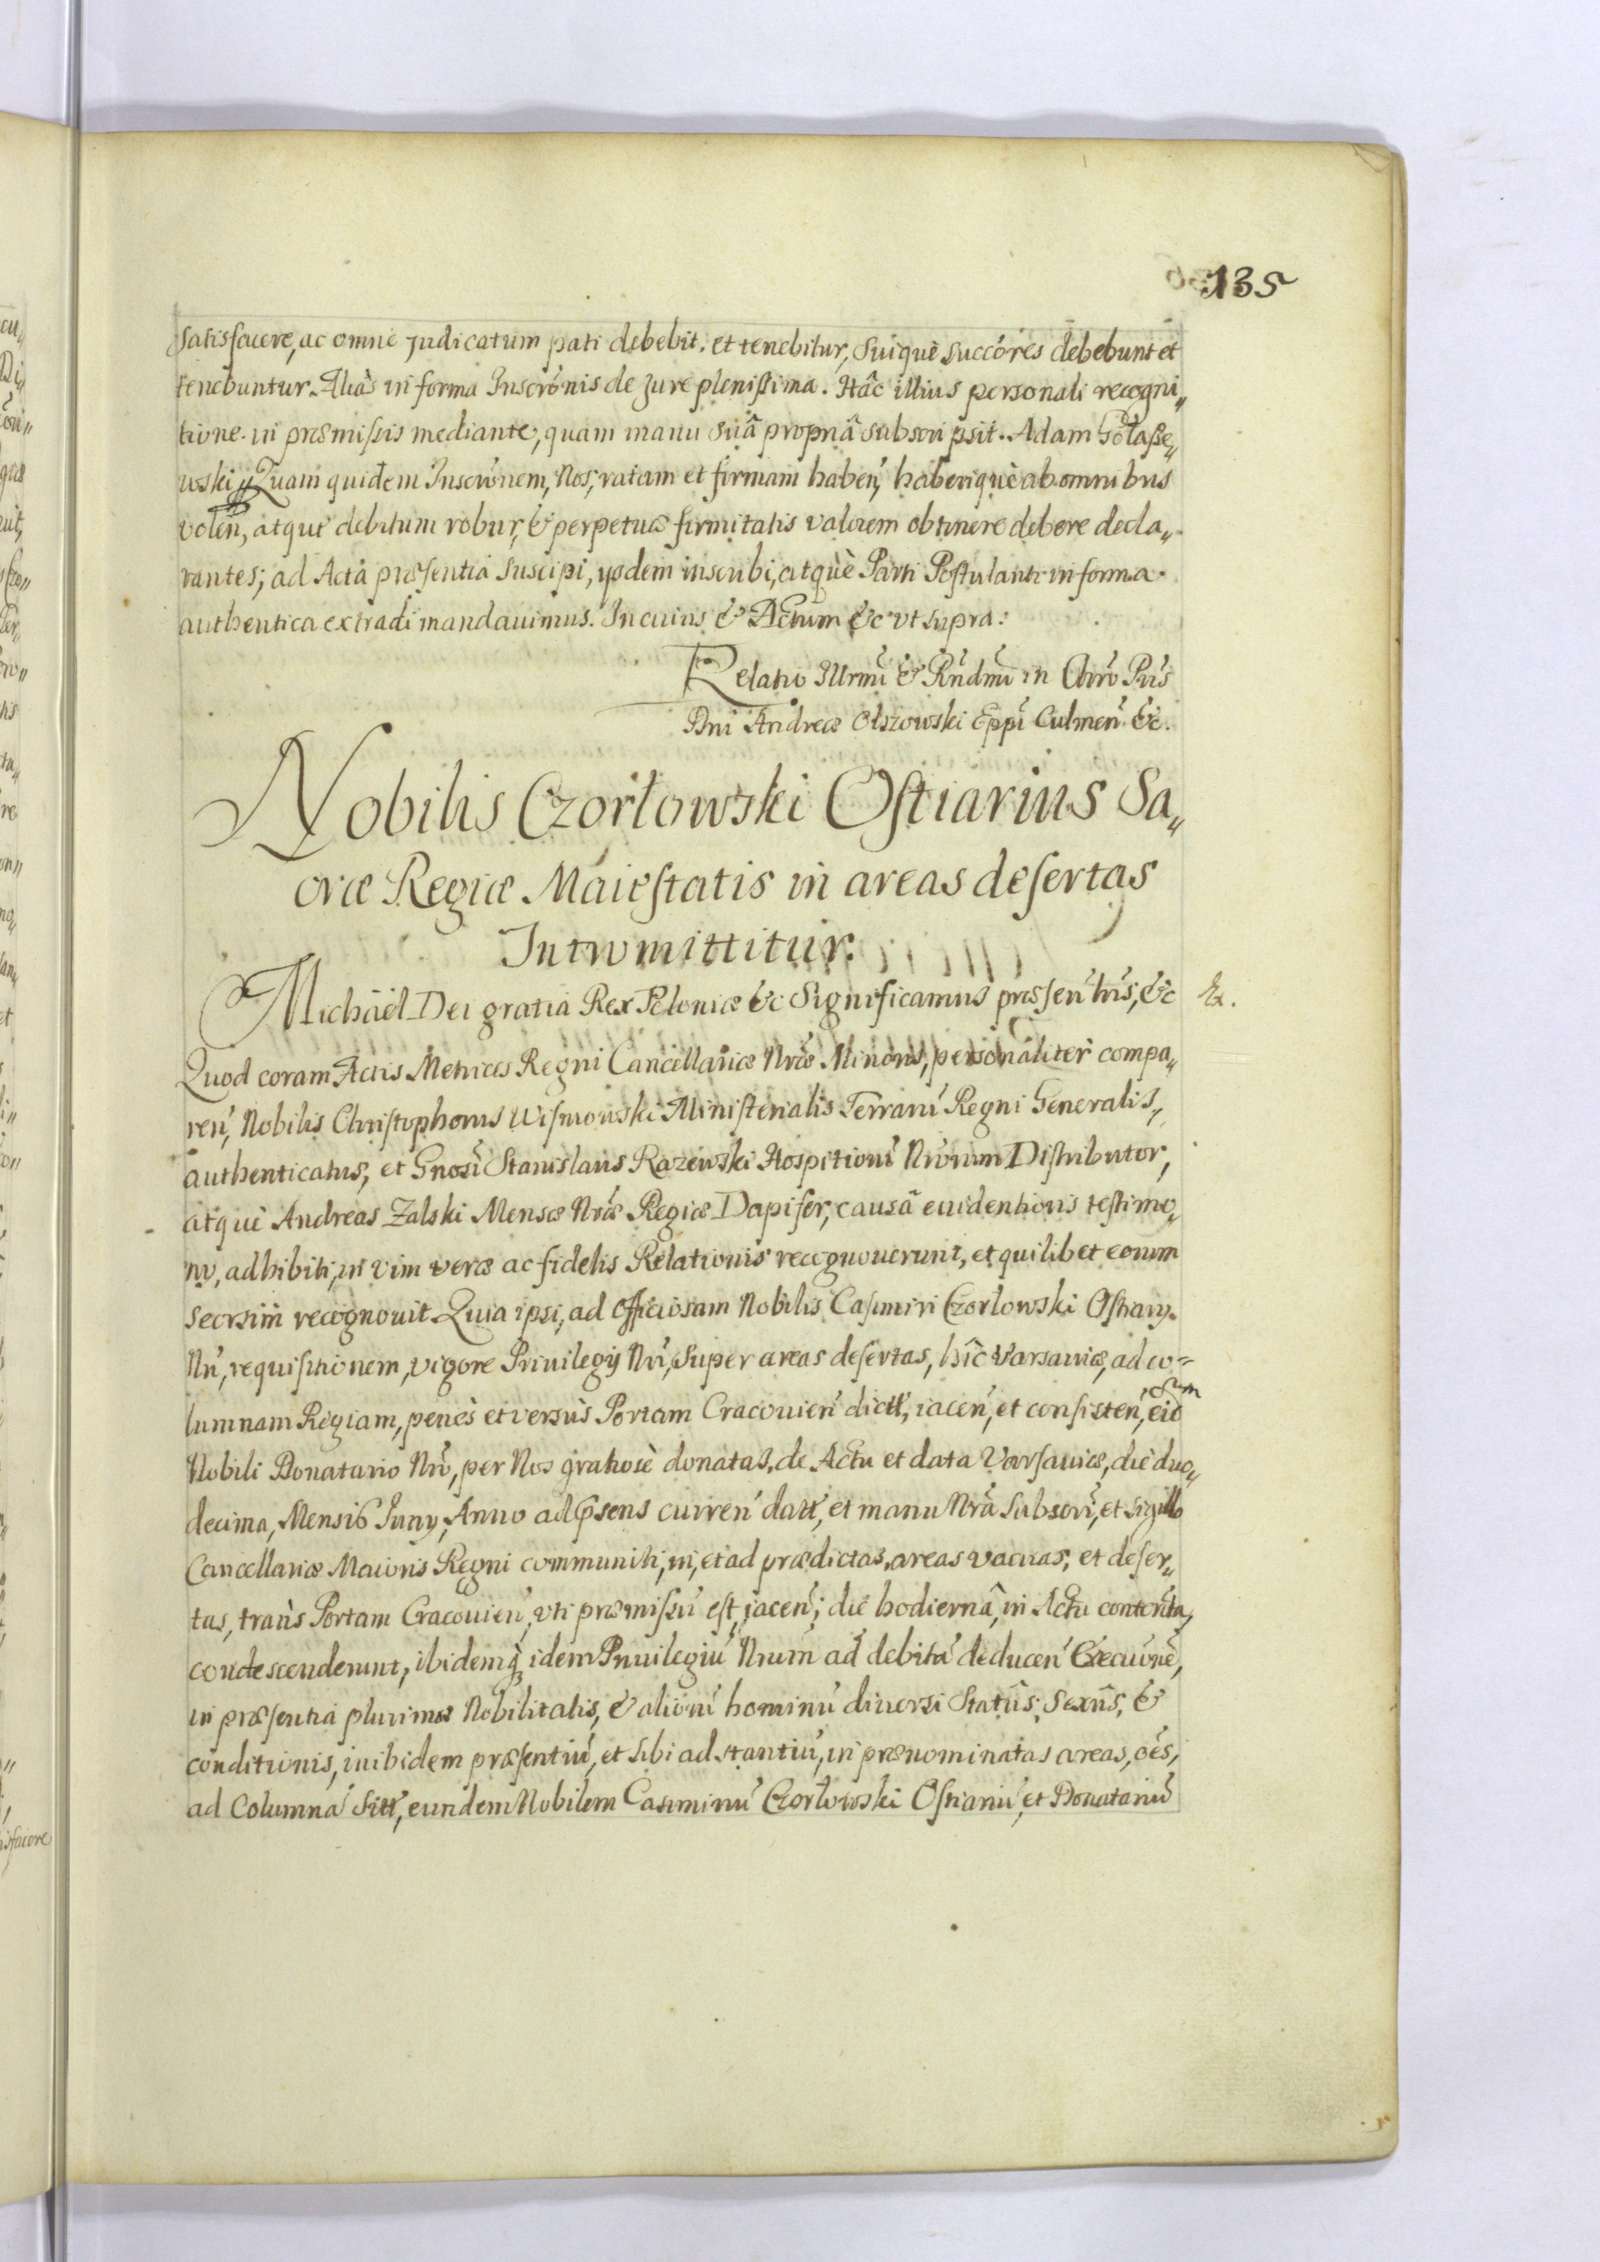 135
satisfacere, ac omne judicatum pati debebit, et tenebitur, Suiquè Succôres debebunt et
tenebuntur. Aliàs in forma Inscrônis de jure plenissima. Hâc illius personali recogni„
tione in præmissis mediante, quam manu suâ propriâ subscripsit. Adam Gołasze„
wski. Quam quidem Inscrônem, Nos, ratam et firmam haben, haberiquè ab omnibus
volen, atque debitum robur, & perpetuæ firmitatis valorem obtinere debere decla„
rantes; ad Acta præsentia suscipi, ijsdem inscribi, atquè Parti Postulanti in forma
authentica extradi mandavimus. In cuius & Actum &c vt supra:
Relatio Illrmi & Rndmi in Chro Pris
Dni Andreæ Olszowski Eppi Culmen &c.
Nobilis Czorłowski Ostiarius Sa„
cræ Regiæ Maiestatis in areas desertas
Intromittitur.
Michäel Dei gratia Rex Poloniæ &c Significamus præsentibus, &c
Quod coram Actis Metrices Regni Cancellariæ Nræ Minoris, personaliter compa„
ren, Nobilis Christophorus Wisniowski Ministerialis Terrarū Regni Generalis,
authenticatus, et Gnosi Stanislaus Razewski Hospitiorū Nrorum Distributor,
atquè Andreas Zalski Mensæ Nræ Regiæ Dapifer, causâ euidentioris testimo„
nij, adhibiti, in vim veræ ac fidelis Relationis recognouerunt, et quilibet eorum
seorsim recognouit. Quia ipsi, ad officiosam Nobilis Casimiri Czorłowski Ostiarij
Nri, requisitionem, vigore Privilegij Nri, super areas desertas, hîc Varsauiæ, ad co=
lumnam Regiam, penès et versùs Portam Cracouien dictt, iacen, et consisten, eid
Nobili Donatario Nro, per Nos gratiosè donatas, de Actu et data Varsauiæ, die duo„
decima, Mensis Junij, Anno ad præsens curren datt, et manu Nrâ Subscri, et sigillo
Cancellariæ Maioris Regni communiti, in, et ad prædictas, areas vacuas, et deser„
tas, trans Portam Cracouien, vti præmissū est, jacen; die hodiernâ, in Actu contenta,
condescenderunt, ibidemq idem Priuilegiū Nrum ad debitā deducen Executionē,
in præsentia plurimæ Nobilitatis, & aliorū hominū diuersi Statûs, Sexûs, &
conditionis, inibidem præsentiū, et sibi adstantiū, in prænominatas areas, oēs,
ad Columnā sitt, eundem Nobilem Casimirū Czorłowski Ostiariū, et Donatariū